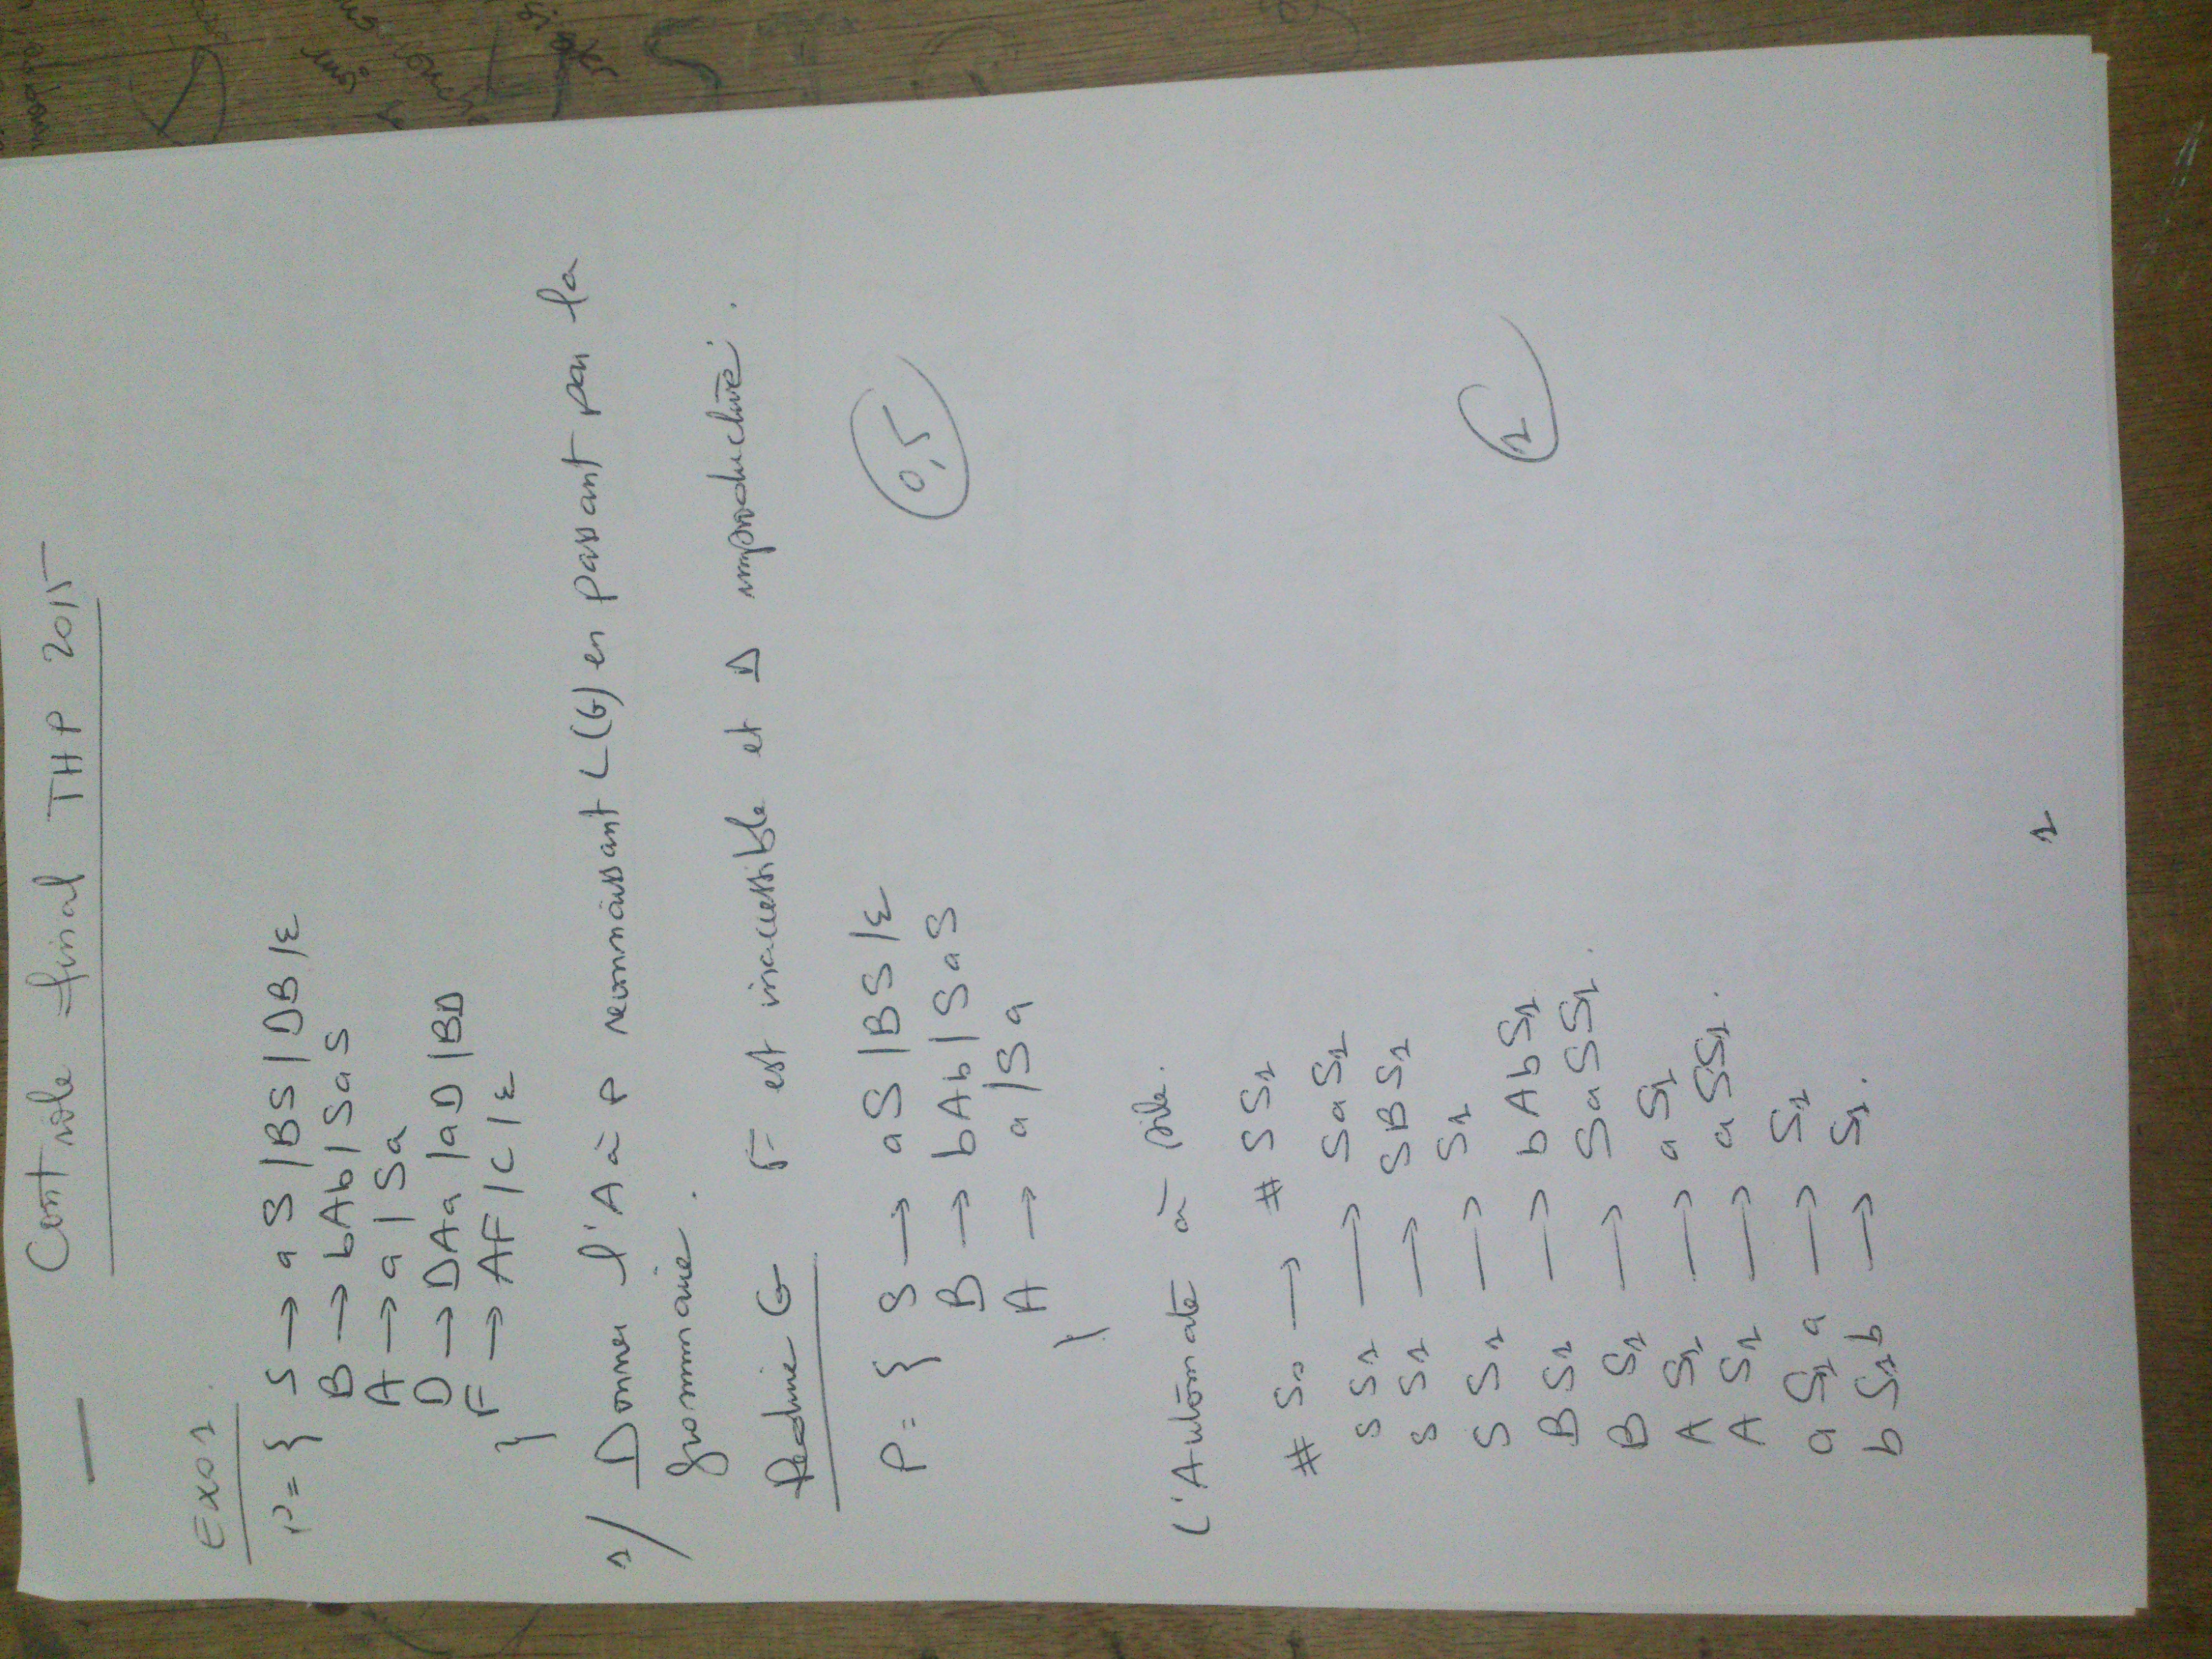 Contrôle final THP 2015
Exo 1
P = { S → aS | BS | DB | ε
B → bAb | SaS
A → a | Sa
D → DAa | aD | BD
F → AF | C | ε
}
1/ Donner l'A à P reconnaissant L(G) en passant par la
grammaire.
Reduire G F est inaccessible et D improductive.
P = { S → aS | BS | ε
0,5
B → bAb | SaS
A → a | Sa
}
L'Automate à pile.
# S0 → # S S1
S S1 → S a S1
S S1 → S B S1
S S1 → S1
B S1 → b A b S1
1
B S1 → S a S S1.
A S1 → a S1
A S1 → a S S1.
a S1 a → S1
b S1 b → S1.
1